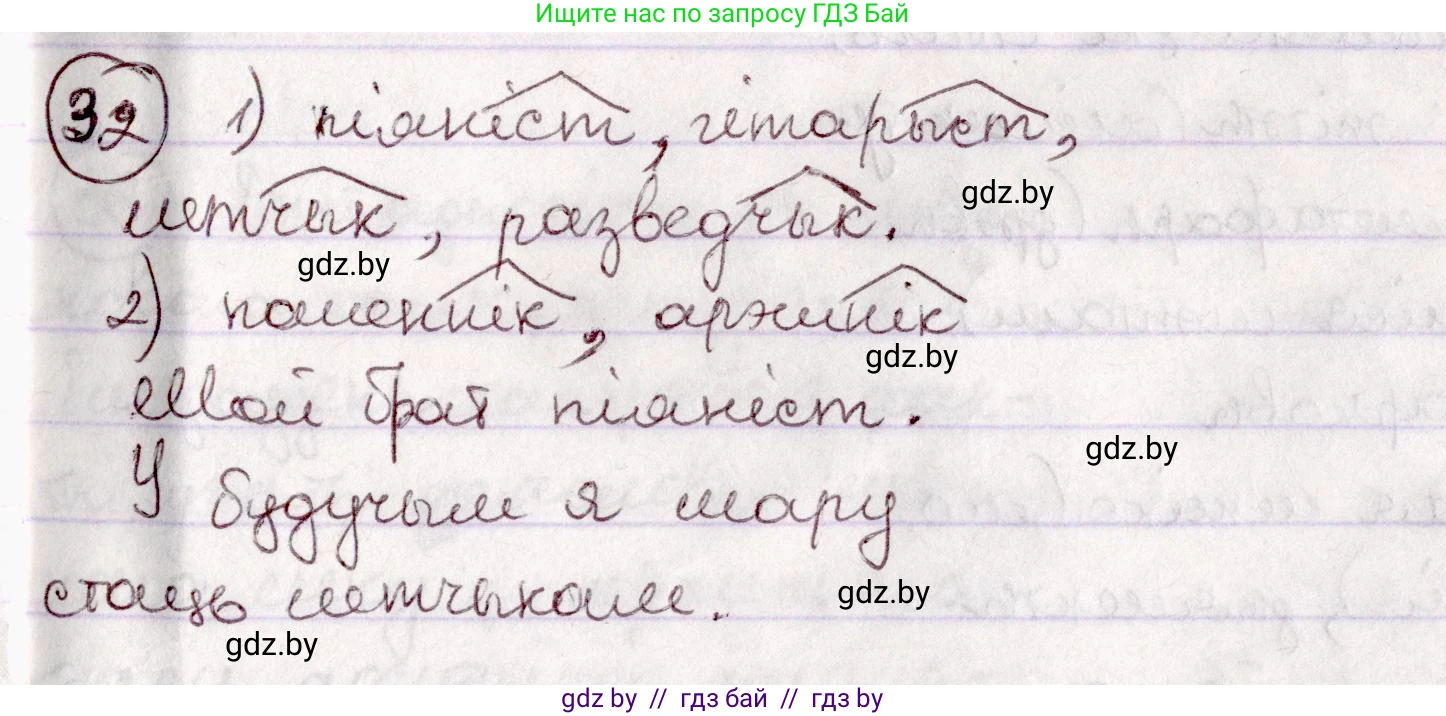 Ищите нас по запросу ГДЗ Бай
32 1) піяніст, гітарыст,
gdz.by
лётчык, разведчык.
gdz.by
2) каменнік, аржнік
gdz.by
Мой брат піяніст.
gdz.by
У будучым я мару
стаць лётчыкам.
gdz.by
gdz.by
gdz by // гдз бай // гдз by